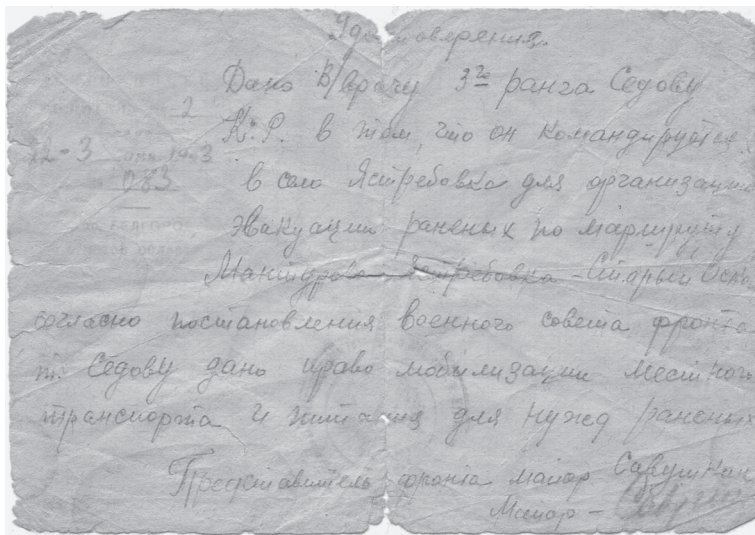 Удостоверения.
Дано В/врачу 3го ранга Седову
К.Р. в том, что он командируется
в село Ястребовка для организации
эвакуации раненых по маршруту
Мантурово - Ястребовка - Старый Оскол
согласно постановления военного совета фронта
т. Седову дано право мобилизации местного
транспорта и питания для нужд раненых
Представитель фронта майор Савушкин
Майор -
2
22 - 3
083